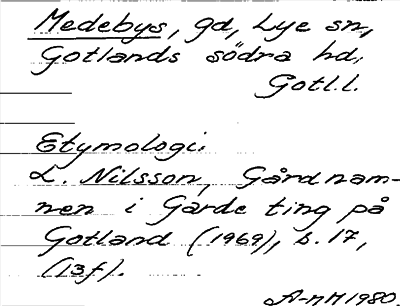 Medebys, gd, Lye sn,
Gotlands södra hd,
Gotl.l.
Etymologi:
L. Nilsson, Gårdnam-
nen i Garde ting på
Gotland (1969), s. 17,
(13f).
A-M H 1980.